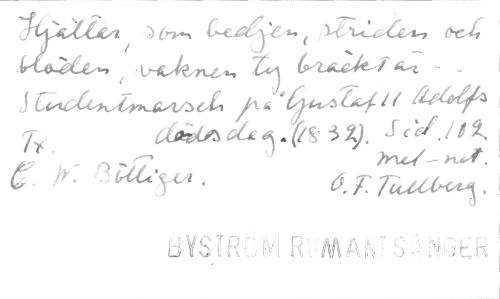 Hjältar, som bedjen, striden och
blöden, vaknen ty bräckt är - -
Studentmarsch på Gustaf II Adolfs
dödsdag. (1832). Sid. 102
Tx. mel-not.
C. W. Böttiger. O. F. Tullberg.
BYSTRÖM RUMANTSÅNGER